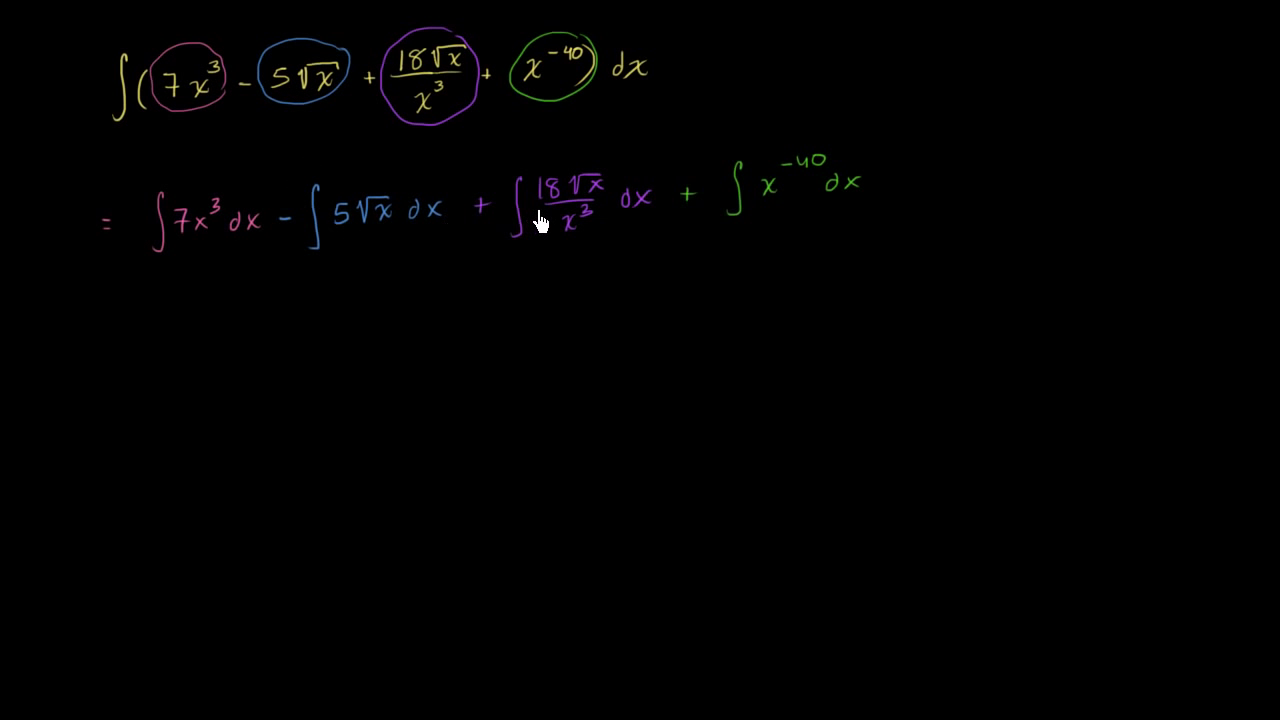 ∫(7x³ - 5√x + 18√x/x³ + x⁻⁴⁰) dx
= ∫7x³ dx - ∫5√x dx + ∫18√x/x³ dx + ∫x⁻⁴⁰dx